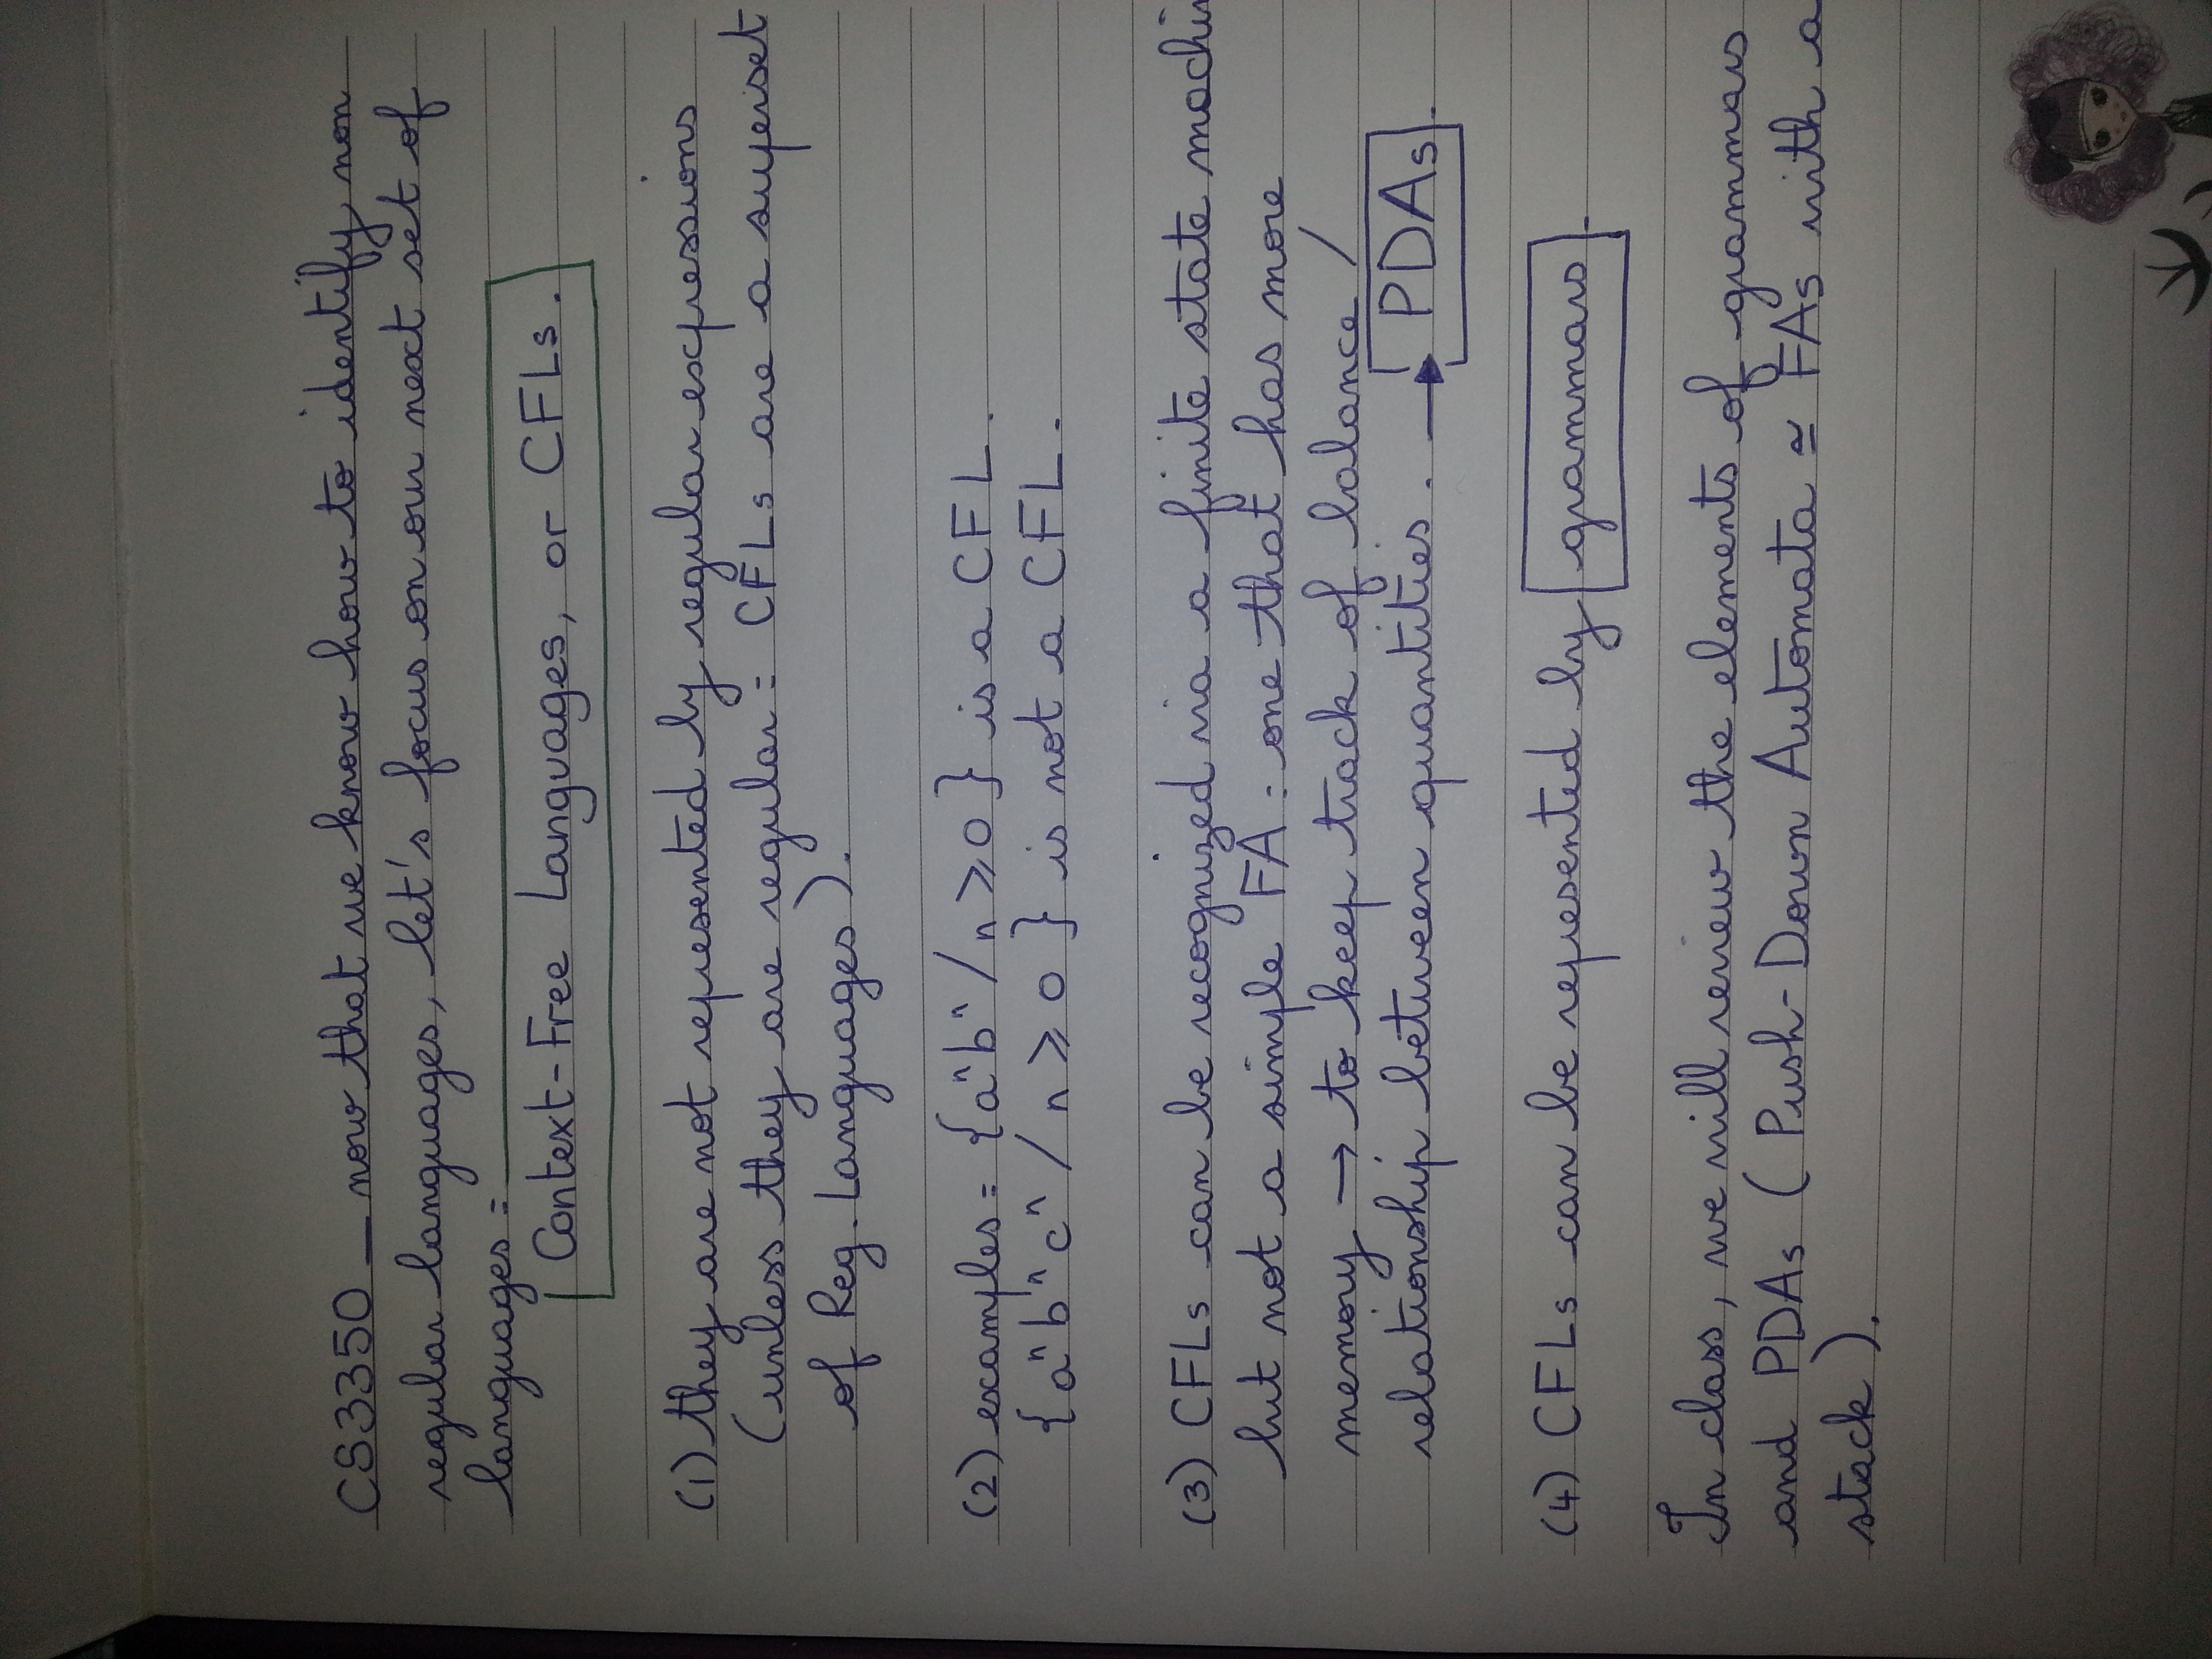 CS3350 _ now that we know how to identify non
regular languages, let's focus on our next set of
languages:
Context-Free Languages, or CFLs.
(1) they are not represented by regular expressions
(unless they are regular: CFLs are a superset
of Reg. Languages).
(2) examples: {aⁿbⁿ / n ≥ 0} is a CFL.
{aⁿbⁿcⁿ / n ≥ 0} is not a CFL.
(3) CFLs can be recognized via a finite state machi
but not a simple FA: one that has more
memory → to keep track of balance /
relationship between quantities. → PDAs.
(4) CFLs can be represented by grammars.
In class, we will review the elements of grammars
and PDAs (Push-Down Automata ≃ FAs with a
stack).